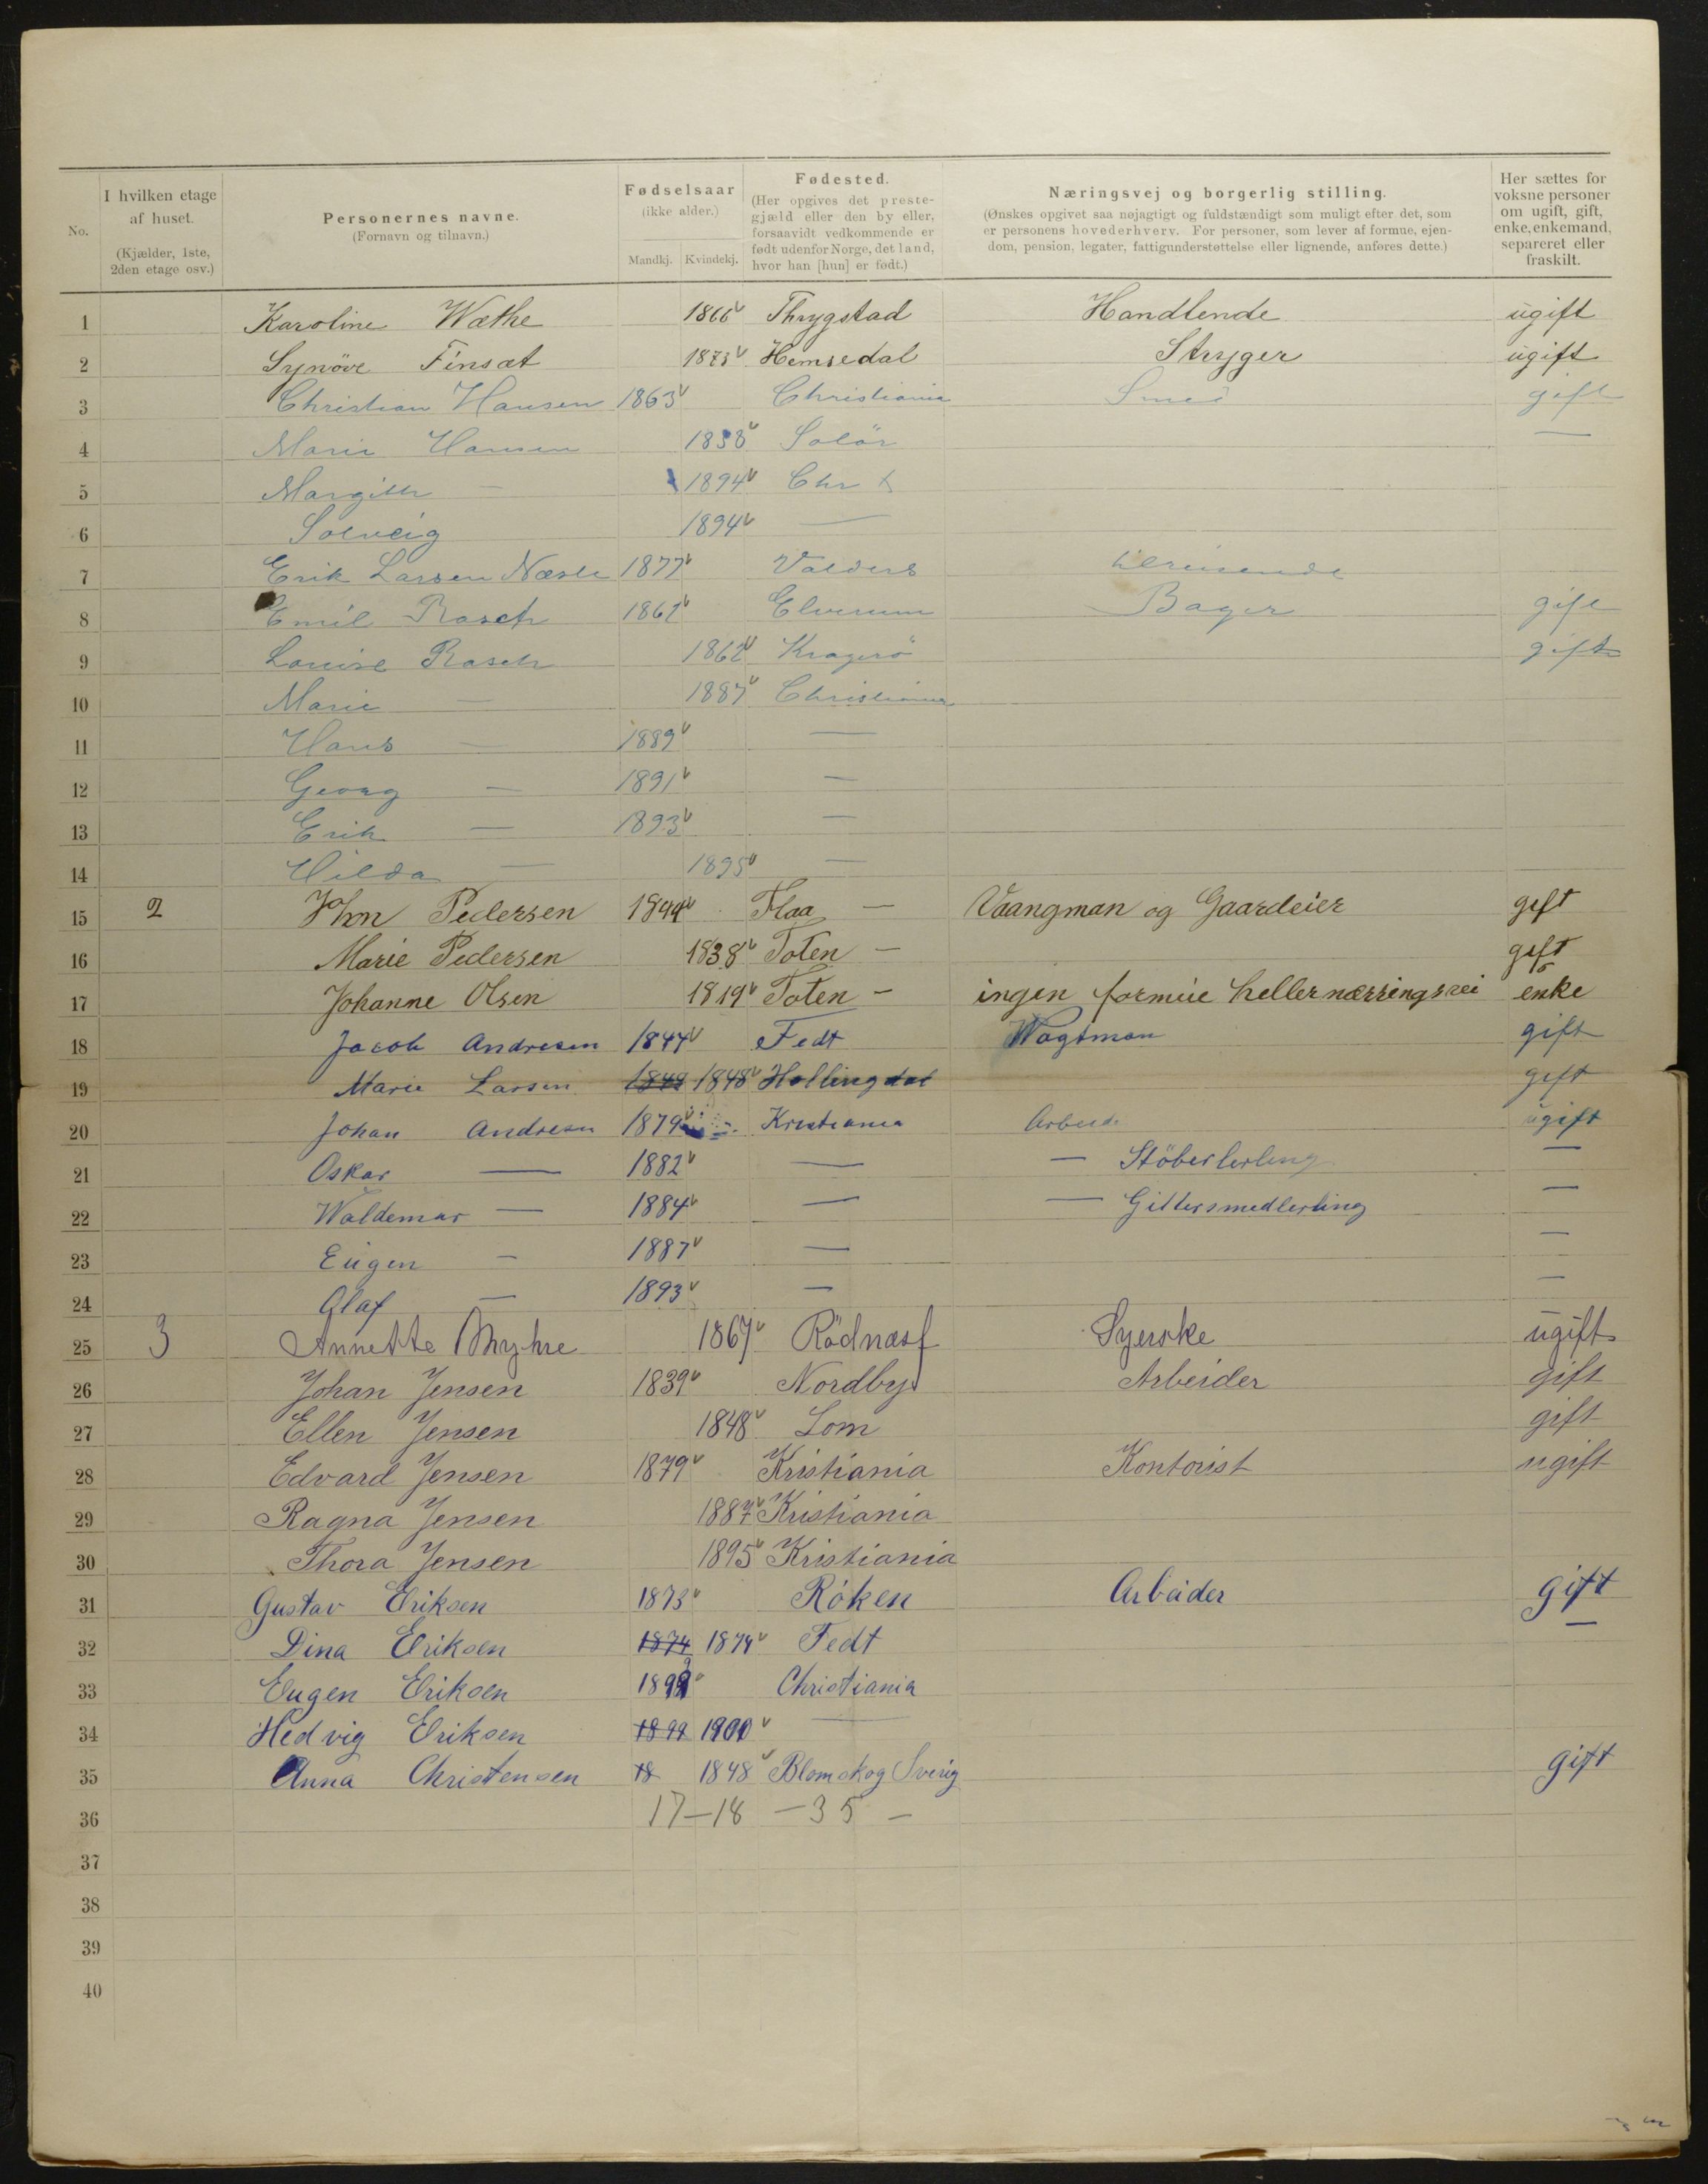 No.
I hvilken etage af huset. (Kjælder, 1ste, 2den etage osv.)
Personernes navne. (Fornavn og tilnavn.)
Fødselsaar (ikke alder.) Mandkj. Kvindekj.
Fødested. (Her opgives det prestegjæld eller den by eller, forsaavidt vedkommende er født udenfor Norge, det land, hvor han [hun] er født.)
Næringsvej og borgerlig stilling. (Ønskes opgivet saa nøjagtigt og fuldstændigt som muligt efter det, som er personens hovederhverv. For personer, som lever af formue, ejendom, pension, legater, fattigunderstøttelse eller lignende, anføres dette.)
Her sættes for voksne personer om ugift, gift, enke, enkemand, separeret eller fraskilt.
1 Karoline Wæthe 1866 Thrygstad Handlende ugift
2 Synöve Finsæt 1873 Hemsedal Stryger ugift
3 Christian Hansen 1863 Christiania Smed gift
4 Marie Hansen 1858 Solör —
5 Margith — 1894 Chr
6 Solveig 1894 —
7 Erik Larsen 1877 Valders tilreisende
8 Emil Rasch 1862 Elverum Bager gift
9 Louise Rasch 1862 Kragerö gift
10 Marie — 1887 Christiania
11 Hans — 1889 —
12 Georg — 1891 —
13 Erik — 1893 —
14 Hilda — 1895 —
15 2 John Pedersen 1844 Flaa — Vaangman og Gaardeier gift
16 Marie Pedersen 1838 Toten — gift
17 Johanne Olsen 1819 Toten — ingen formue heller nærringsvei enke
18 Jacob Andresen 1847 Fedt Wagtman gift
19 Marie Larsen 1849 1848 Hallingdal gift
20 Johan Andresen 1879 Kristiania Arbeid. ugift
21 Oskar — 1882 — — Stöberlerling —
22 Waldemar — 1884 — — Gittersmedlerling —
23 Eugen — 1887 — —
24 Olaf — 1893 — —
25 3 Annette Myhre 1867 Rödnæs Syerske ugift
26 Johan Jensen 1839 Nordby Arbeider gift
27 Ellen Jensen 1848 Lom gift
28 Edvard Jensen 1879 Kristiania Kontorist ugift
29 Ragna Jensen 1887 Kristiania
30 Thora Jensen 1895 Kristiania
31 Gustav Eriksen 1873 Röken Arbeider gift
32 Dina Eriksen 1874 1874 Fedt —
33 Eugen Eriksen 1898 Christiania
34 Hedvig Eriksen 1899 1900 —
35 Anna Christensen 18 1848 Blomskog Sverig gift
36 17—18 —35—
37
38
39
40